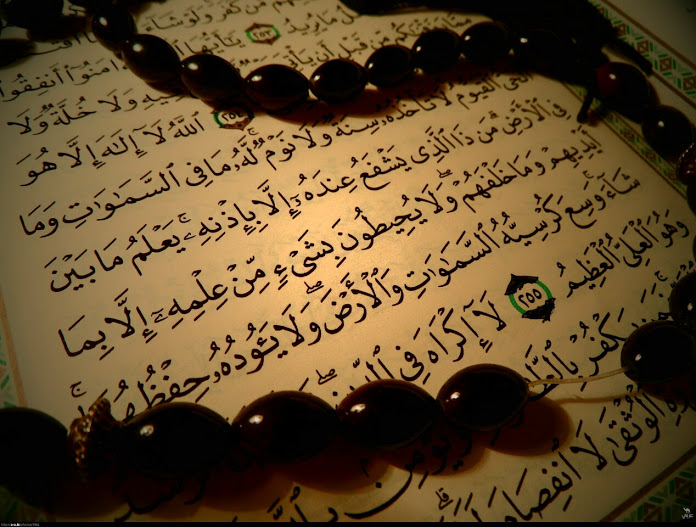 كَفَرَ وَلَوْ شَآءَ
مَا يُرِيدُ ٢٥٣ يَـٰٓأَيُّهَا ءَامَنُوٓا۟ أَنفِقُوا۟
مِّن قَبْلِ أَن يَأْتِىَ فِيهِ وَلَا خُلَّةٌ وَلَا
٢٥٤ ٱللَّهُ لَآ إِلَـٰهَ إِلَّا هُوَ
ٱلْحَىُّ ٱلْقَيُّومُ لَا تَأْخُذُهُۥ سِنَةٌ وَلَا نَوْمٌ ۚ لَّهُۥ مَا فِى ٱلسَّمَـٰوَٰتِ وَمَا
فِى ٱلْأَرْضِ ۗ مَن ذَا ٱلَّذِى يَشْفَعُ عِندَهُۥٓ إِلَّا بِإِذْنِهِۦ ۚ يَعْلَمُ مَا بَيْنَ
أَيْدِيهِمْ وَمَا خَلْفَهُمْ ۖ وَلَا يُحِيطُونَ بِشَىْءٍ مِّنْ عِلْمِهِۦٓ إِلَّا بِمَا
شَآءَ ۚ وَسِعَ كُرْسِيُّهُ ٱلسَّمَـٰوَٰتِ وَٱلْأَرْضَ ۖ وَلَا يَـُٔودُهُۥ حِفْظُهُمَا ۚ
وَهُوَ ٱلْعَلِىُّ ٱلْعَظِيمُ ٢٥٥ لَآ إِكْرَاهَ فِى ٱلدِّينِ ۖ
يَكْفُرْ
ٱلْوُثْقَىٰ لَا ٱنفِصَامَ